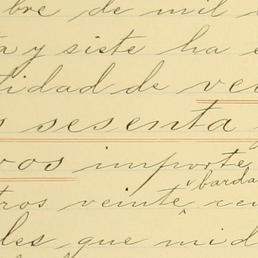 bre de mil
ta y siete ha e
tidad de ve
s sesenta
vos importe
barda
tros veinte ce
les que mid